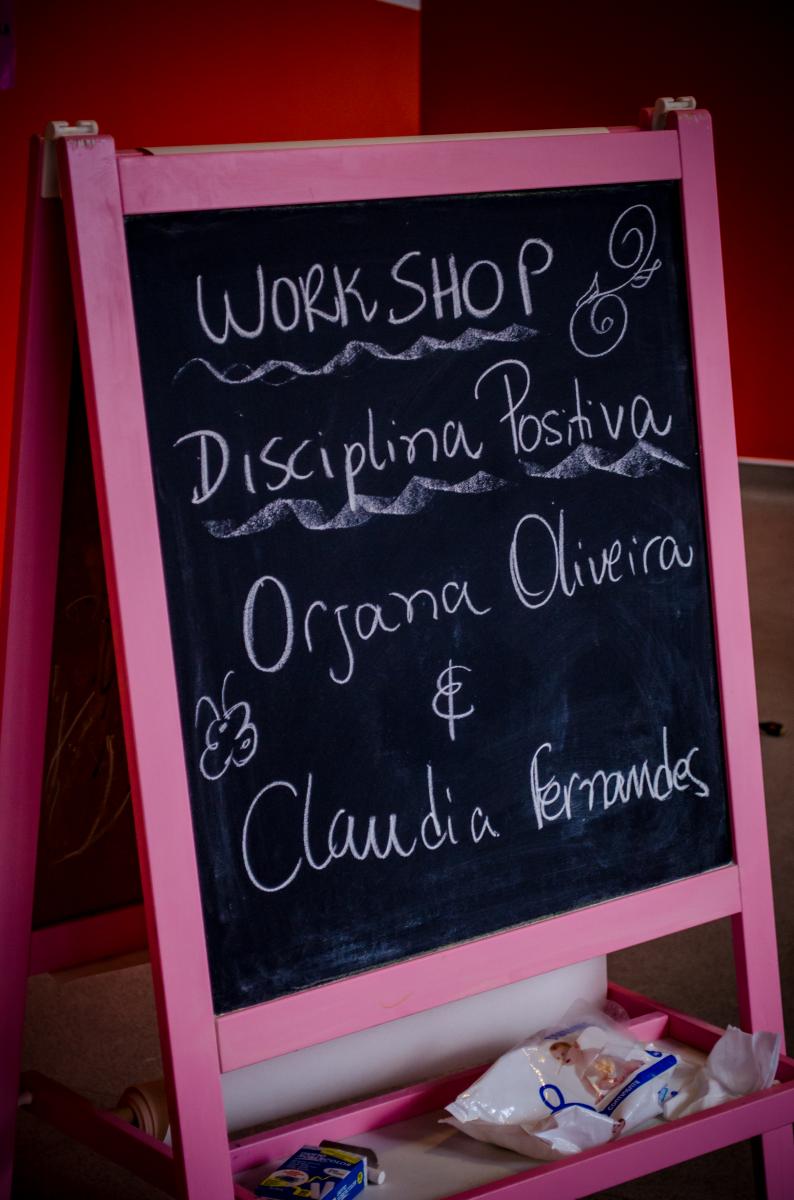 WORKSHOP
Disciplina Positiva
Orjana Oliveira
&
Claudia Fernandes